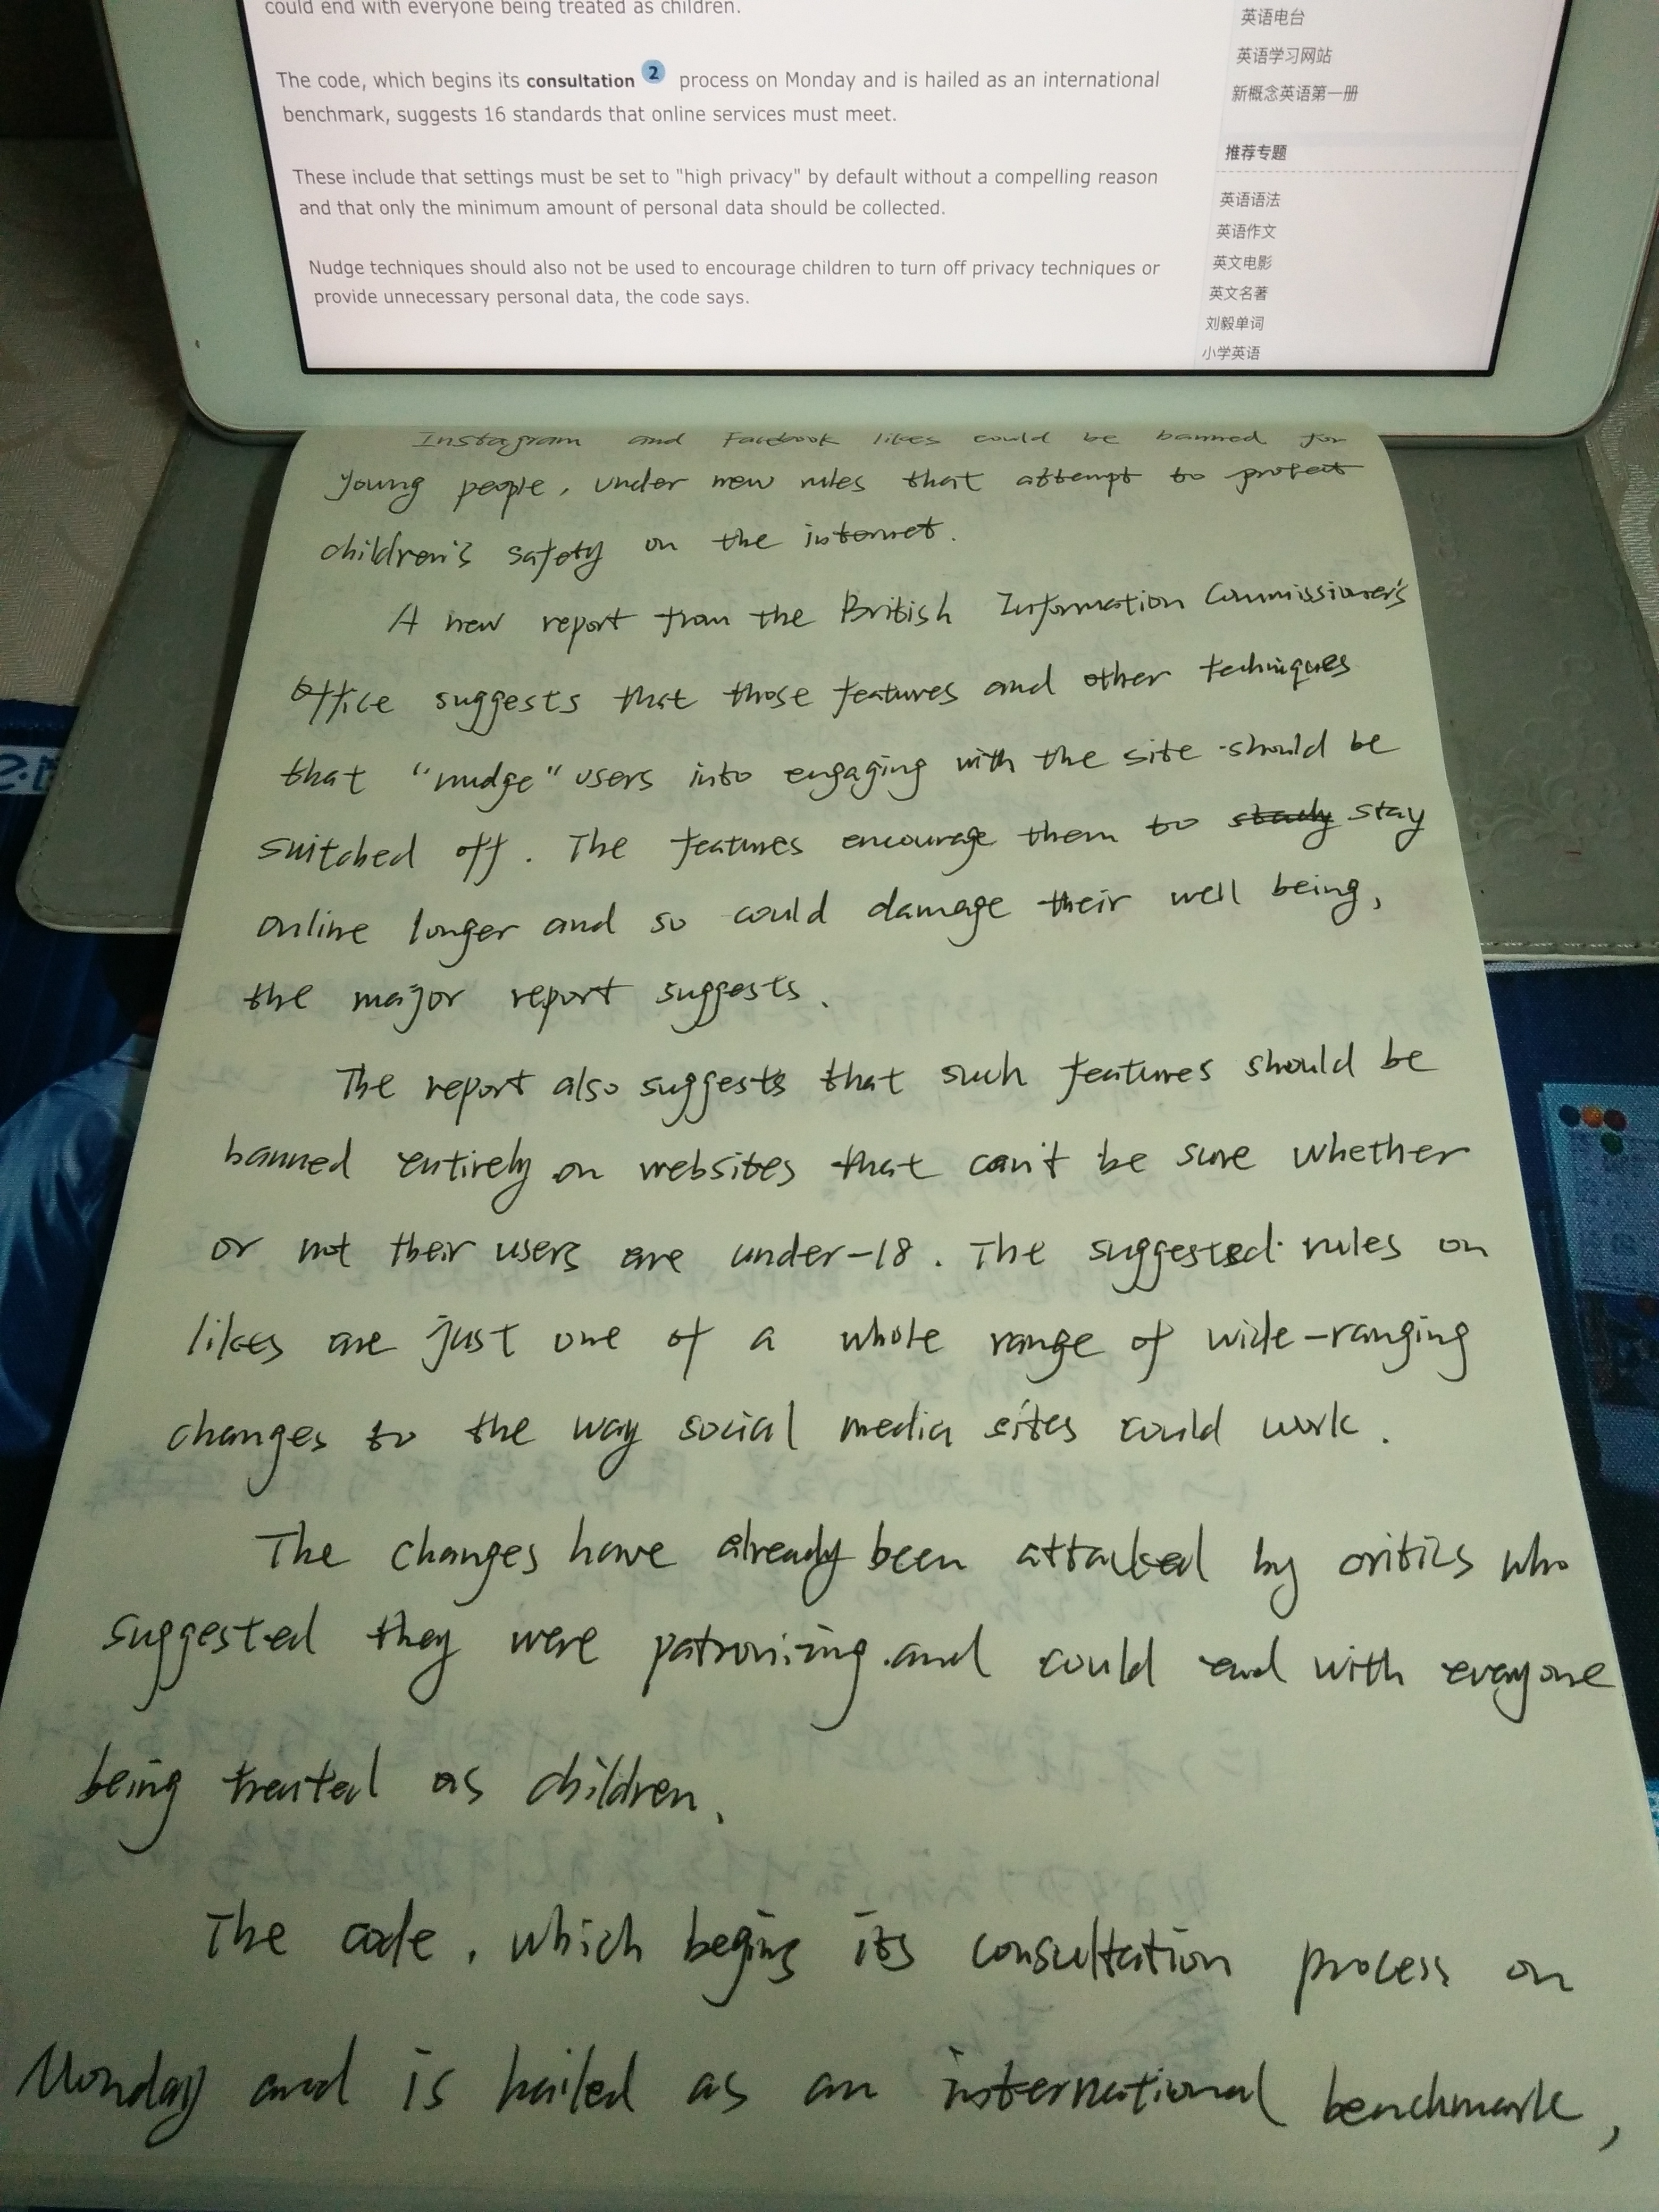 could end with everyone being treated as children.
The code, which begins its consultation 2 process on Monday and is hailed as an international
benchmark, suggests 16 standards that online services must meet.
These include that settings must be set to "high privacy" by default without a compelling reason
and that only the minimum amount of personal data should be collected.
Nudge techniques should also not be used to encourage children to turn off privacy techniques or
provide unnecessary personal data, the code says.
英语电台
英语学习网站
新概念英语第一册
推荐专题
英语语法
英语作文
英文电影
英文名著
刘毅单词
小学英语
Instagram and Facebook likes could be banned for
young people, under new rules that attempt to protect
children's safety on the internet.
A new report from the British Information Commissioner's
Office suggests that those features and other techniques
that "nudge" users into engaging with the site should be
switched off. The features encourage them to stay
online longer and so could damage their well being,
the major report suggests.
The report also suggests that such features should be
banned entirely on websites that can't be sure whether
or not their users are under-18. The suggested rules on
likes are just one of a whole range of wide-ranging
changes to the way social media sites could work.
The changes have already been attacked by critics who
suggested they were patronizing and could end with everyone
being treated as children.
The code, which begins its consultation process on
Monday and is hailed as an international benchmark,